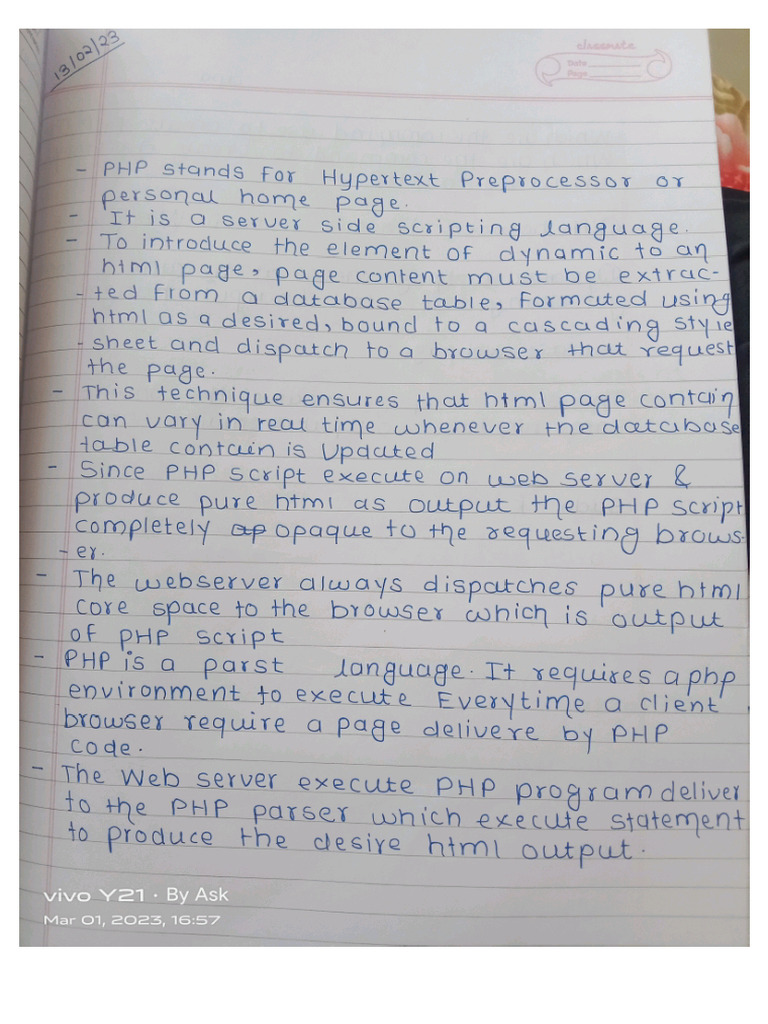 13/02/23
classmate
Date
Page
- PHP stands for Hypertext Preprocessor or
personal home page.
- It is a server side scripting language.
- To introduce the element of dynamic to an
html page, page content must be extrac-
-ted from a database table, formated using
html as a desired, bound to a cascading style
-sheet and dispatch to a browser that request
the page.
- This technique ensures that html page contain
can vary in real time whenever the database
table contain is Updated
- Since PHP script execute on web server &
produce pure html as output the PHP script
completely op opaque to the requesting brows-
-er.
- The webserver always dispatches pure html
core space to the browser which is output
of PHP script
- PHP is a parst language. It requires a php
environment to execute Everytime a client
browser require a page delivere by PHP
code.
- The Web server execute PHP program deliver
to the PHP parser which execute statement
to produce the desire html output.
vivo Y21 · By Ask
Mar 01, 2023, 16:57